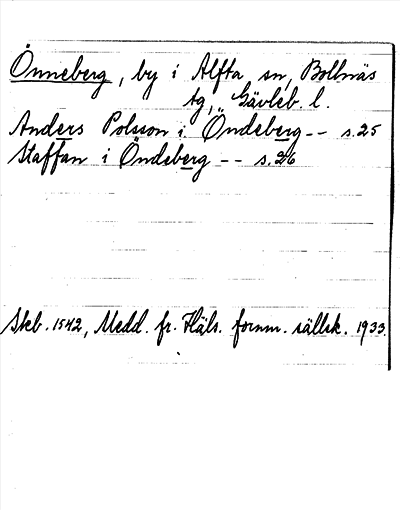 Önneberg, by i Alfta sn, Bollnäs
tg, Gävleb. l.
Anders Polsson i Öndeberg -- s. 25
Staffan i Öndeberg -- s. 26
Skb. 1542, Medd. fr. Häls. fornm. sällsk. 1933.